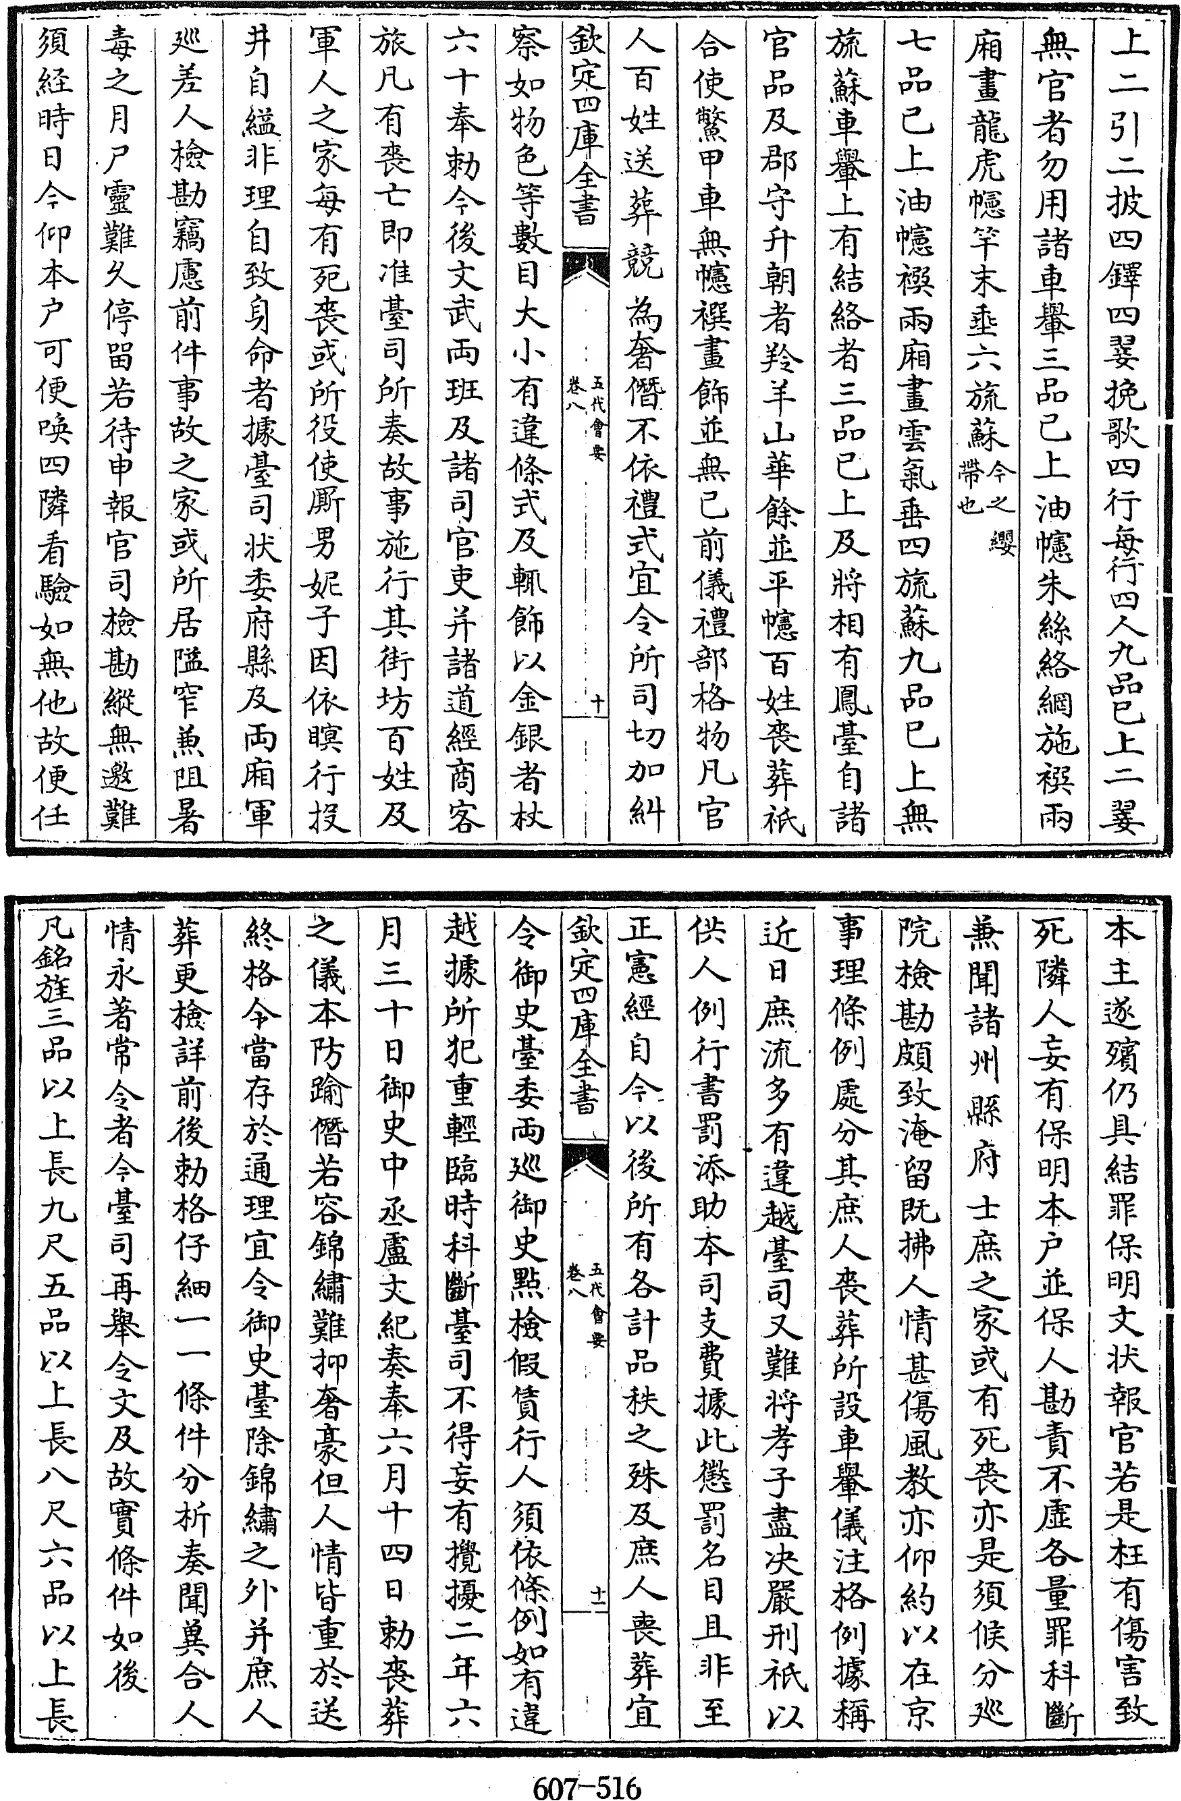 上二引二披四鐸四翣挽歌四行每行四人九品已上二翣
無官者勿用諸車轝三品已上油幰朱絲絡網施襈兩
廂畫龍虎幰竿末垂六旒蘇今之纓帶也
七品已上油幰襈兩廂畫雲氣垂四旒蘇九品已上無
旒蘇車轝上有結絡者三品已上及將相有鳳臺自諸
官品及郡守升朝者羚羊山華餘並平幰百姓喪葬祇
合使鱉甲車無幰襈畫飾並無已前儀禮部格物凡官
人百姓送葬競為奢僭不依禮式宜令所司切加糾
欽定四庫全書
五代會要
卷八
十
察如物色等數目大小有違條式及輒飾以金銀者杖
六十奉勅今後文武兩班及諸司官吏并諸道經商客
旅凡有喪亡即准臺司所奏故事施行其街坊百姓及
軍人之家每有死喪或所役使厮男妮子因依瞑行投
井自縊非理自致身命者據臺司狀委府縣及兩廂軍
廵差人檢勘竊慮前件事故之家或所居隘窄兼阻暑
毒之月尸靈難久停留若待申報官司檢勘縱無邀難
須経時日今仰本户可便喚四隣看驗如無他故便任
本主遂殯仍具結罪保明文狀報官若是枉有傷害致
死隣人妄有保明本户並保人勘責不虛各量罪科斷
兼聞諸州縣府士庶之家或有死喪亦是須候分廵
院檢勘頗致淹留既拂人情甚傷風教亦仰約以在京
事理條例處分其庶人喪葬所設車轝儀注格例據稱
近日庶流多有違越臺司又難將孝子盡决嚴刑祇以
供人例行書罰添助本司支費據此懲罰名目且非至
正憲經自今以後所有各計品秩之殊及庶人喪葬宜
欽定四庫全書
五代會要
卷八
十一
令御史臺委兩廵御史點檢假賃行人須依條例如有違
越據所犯重輕臨時科斷臺司不得妄有攪擾二年六
月三十日御史中丞盧文紀奏奉六月十四日勅喪葬
之儀本防踰僭若容錦繡難抑奢豪但人情皆重於送
終格令當存於通理宜令御史臺除錦繡之外并庶人
葬更檢詳前後勅格仔細一一條件分析奏聞兾合人
情永著常令者今臺司再舉令文及故實條件如後
凡銘旌三品以上長九尺五品以上長八尺六品以上長
607-516